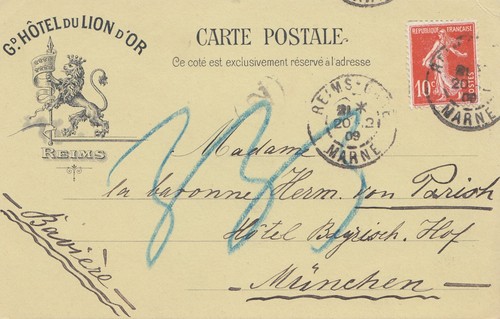 Gd. HÔTEL DU LION D'OR
REIMS
CARTE POSTALE
Ce coté est exclusivement réservé à l'adresse
RÉPUBLIQUE FRANÇAISE
10c
POSTES
REIMS
20
09
MARNE
REIMS
20 12
09
MARNE
Madame
la baronne Herm. von Parish
Hôtel Bayrisch. Hof
München
Bavière